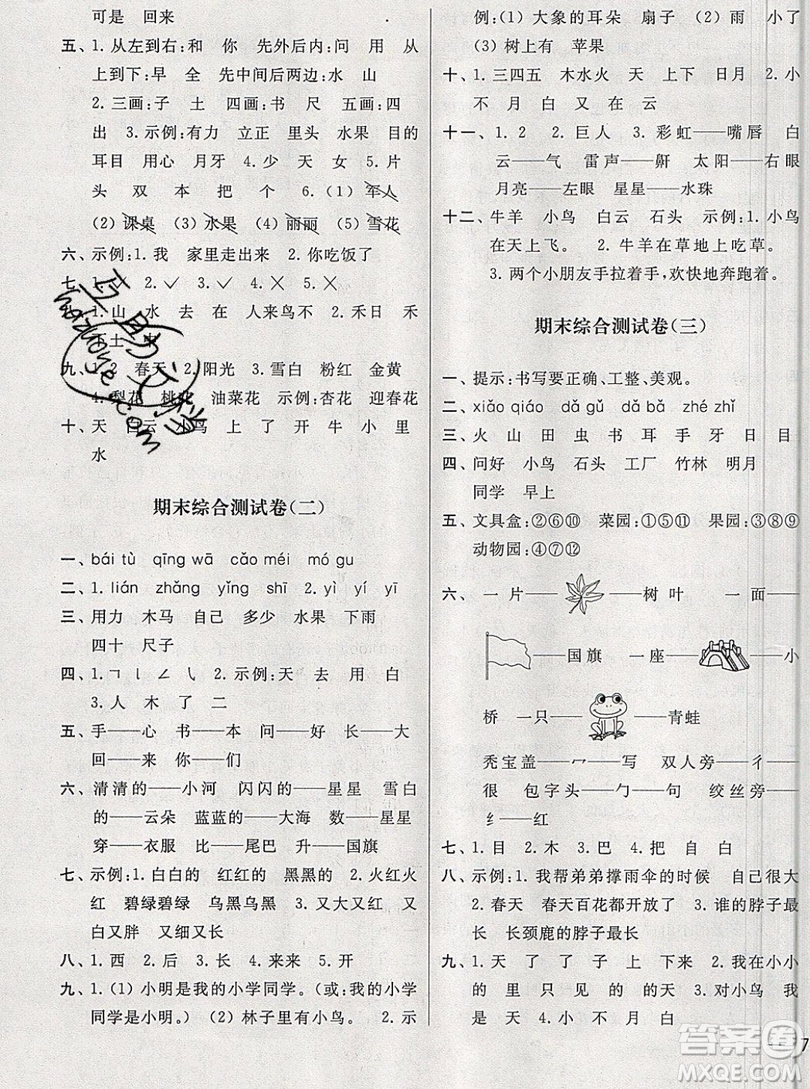 可是 回来
五、1.从左到右:和 你 先外后内:问 用 从
上到下:早 全 先中间后两边:水 山
2.三画:子 土 四画:书 尺 五画:四
出 3.示例:有力 立正 里头 水果 目的
耳目 用心 月牙 4.少 天 女 5.片
头 双 本 把 个 6.(1)军人
(2)课桌 (3)水果 (4)丽丽 (5)雪花
六、示例:1.我 家里走出来 2.你吃饭了
七、 2.✓ 3.✓ 4.✕ 5.✕
1.山 水 去 在 人来鸟不 2.日 禾
土
九、1.2 春天 2.阳光 3.雪白 粉红 金黄
4.梨花 桃花 油菜花 示例:杏花 迎春花
十、天 白云 小鸟 上 了 开 牛 小 里
水
期末综合测试卷(二)
一、bái tù qīng wā cǎo méi mó gu
二、1.lián zhǎng yǐng shī 2.yì yí yī
三、用力 木马 自己 多少 水果 下雨
四十 尺子
四、1.㇕ 丨 ㇜ ㇂ 2.示例:天 去 用 白
3.人 木 了 二
五、手——心 书——本 问——好 长——大
回——来 你——们
六、清清的——小河 闪闪的——星星 雪白
的——云朵 蓝蓝的——大海 数——星星
穿——衣服 比——尾巴 升——国旗
七、示例:1.白白的 红红的 黑黑的 2.火红火
红 碧绿碧绿 乌黑乌黑 3.又大又红
又白又胖 又细又长
八、1.西 2.北 3.来 4.来 5.开
九、1.(1)小明是我的小学同学。(或:我的小学
同学是小明。) (2)林子里有小鸟。 2.示
例:(1)大象的耳朵 扇子 (2)雨 小了
(3)树上有 苹果
十、1.三四五 木水火 天 上下 日月 2.小
不 月 白 又 是 在 云
十一、1.2 2.巨人 3.彩虹——嘴唇 白
云——气 雷声——鼾 太阳——右眼
月亮——左眼 星星——水珠
十二、牛羊 小鸟 白云 石头 示例:1.小鸟
在天上飞。 2.牛羊在草地上吃草。
3.两个小朋友手拉着手,欢快地奔跑着。
期末综合测试卷(三)
一、提示:书写要正确、工整、美观。
二、xiǎo qiáo dǎ gǔ dǎ bǎ zhé zhǐ
三、火 山 田 虫 书 耳 手 牙 日 目
四、问好 小鸟 石头 工厂 竹林 明月
同学 早上
五、文具盒:②⑥⑩ 菜园:①⑤⑪ ③⑧⑨
动物园:④⑦⑫
六、一片—— ——树叶 一面——
——国旗 一座—— ——小
桥 一只—— ——青蛙
秃宝盖——冖——写 双人旁——彳——
很 包字头——勹——句 绞丝旁——
纟——红
七、1.目 2.木 3.巴 4.把 自 白
八、示例:1.我帮弟弟撑雨伞的时候 自己很大
2.春天 春天百花都开放了 3.谁的脖子最长
长颈鹿的脖子最长
九、1.天 了 了 子 上 下来 2.我在小小
的 里 见 闪 的 的 天 3.小鸟 我 是
是 天 4.小 不 月 白
答案卷
MXQE.COM
7